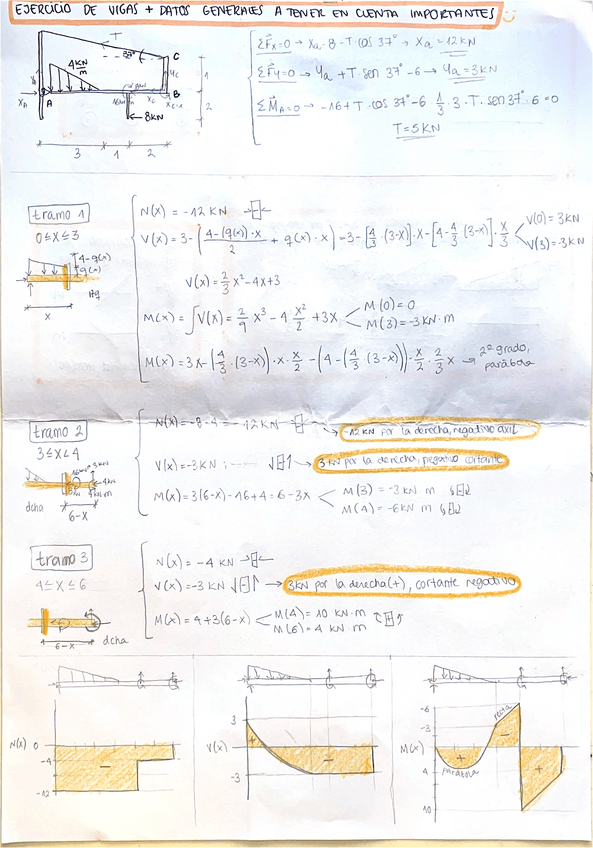 EJERCICIO DE VIGAS + DATOS GENERALES A TENER EN CUENTA IMPORTANTES
T
37°
C
4 KN/m
A
B
8KN
XA
3 1 2
1
2
ΣFx=0 → Xa - 8 - T · cos 37° → Xa = 12 KN
ΣFy=0 → Ya + T · sen 37° - 6 → Ya = 3KN
ΣMA=0 → -16 + T · cos 37° - 6 · 1/3 · 3 · T · sen 37° · 6 = 0
T = 5 KN
tramo 1
0 ≤ x ≤ 3
4 - q(x)
q(x)
x
N(x) = -12 KN
V(x) = 3 - ( (4 - (q(x)) · x)/2 + q(x) · x ) = 3 - [4/3 · (3-x)] · x - [4 - 4/3 · (3-x)] · x/2
V(0) = 3 KN
V(3) = -3 KN
V(x) = 2/3 x² - 4x + 3
M(x) = ∫V(x) = 2/9 x³ - 4 x²/2 + 3x
M(0) = 0
M(3) = -3 KN · m
M(x) = 3x - (4/3 · (3-x)) · x · x/2 - (4 - (4/3 · (3-x))) · x/2 · 2/3 x → 2º grado, parábola
tramo 2
3 ≤ x < 4
dcha
6-x
N(x) = -8 - 4 = -12 KN
-12 KN por la derecha, negativo axil
V(x) = -3 KN
3 KN por la derecha, negativo cortante
M(x) = 3(6-x) - 16 + 4 = 6 - 3x
M(3) = -3 KN m
M(4) = -6 KN m
tramo 3
4 ≤ x ≤ 6
6-x
dcha
N(x) = -4 KN
V(x) = -3 KN
3KN por la derecha (+), cortante negativo
M(x) = 4 + 3(6-x)
M(4) = 10 KN · m
M(6) = 4 KN · m
N(x)
0
-4
-12
V(x)
3
-3
+
-
M(x)
-6
-3
4
10
recta
parábola
+
-
+